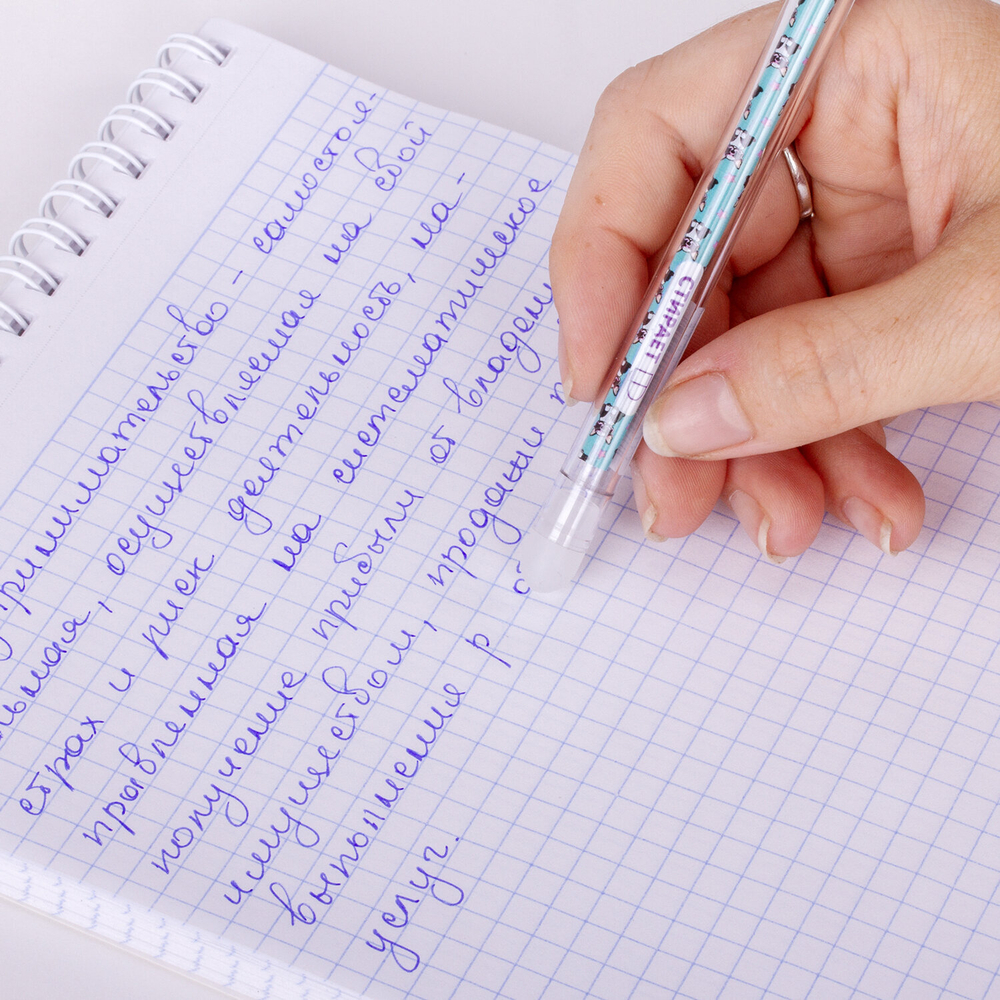 принимательство - самостоя-
тельная, осуществляемая на свой
страх и риск деятельность, на-
правленная на систематическое
получение прибыли от владени
имуществом, продажи
выполнения р
услуг.
СТИРАЕТ